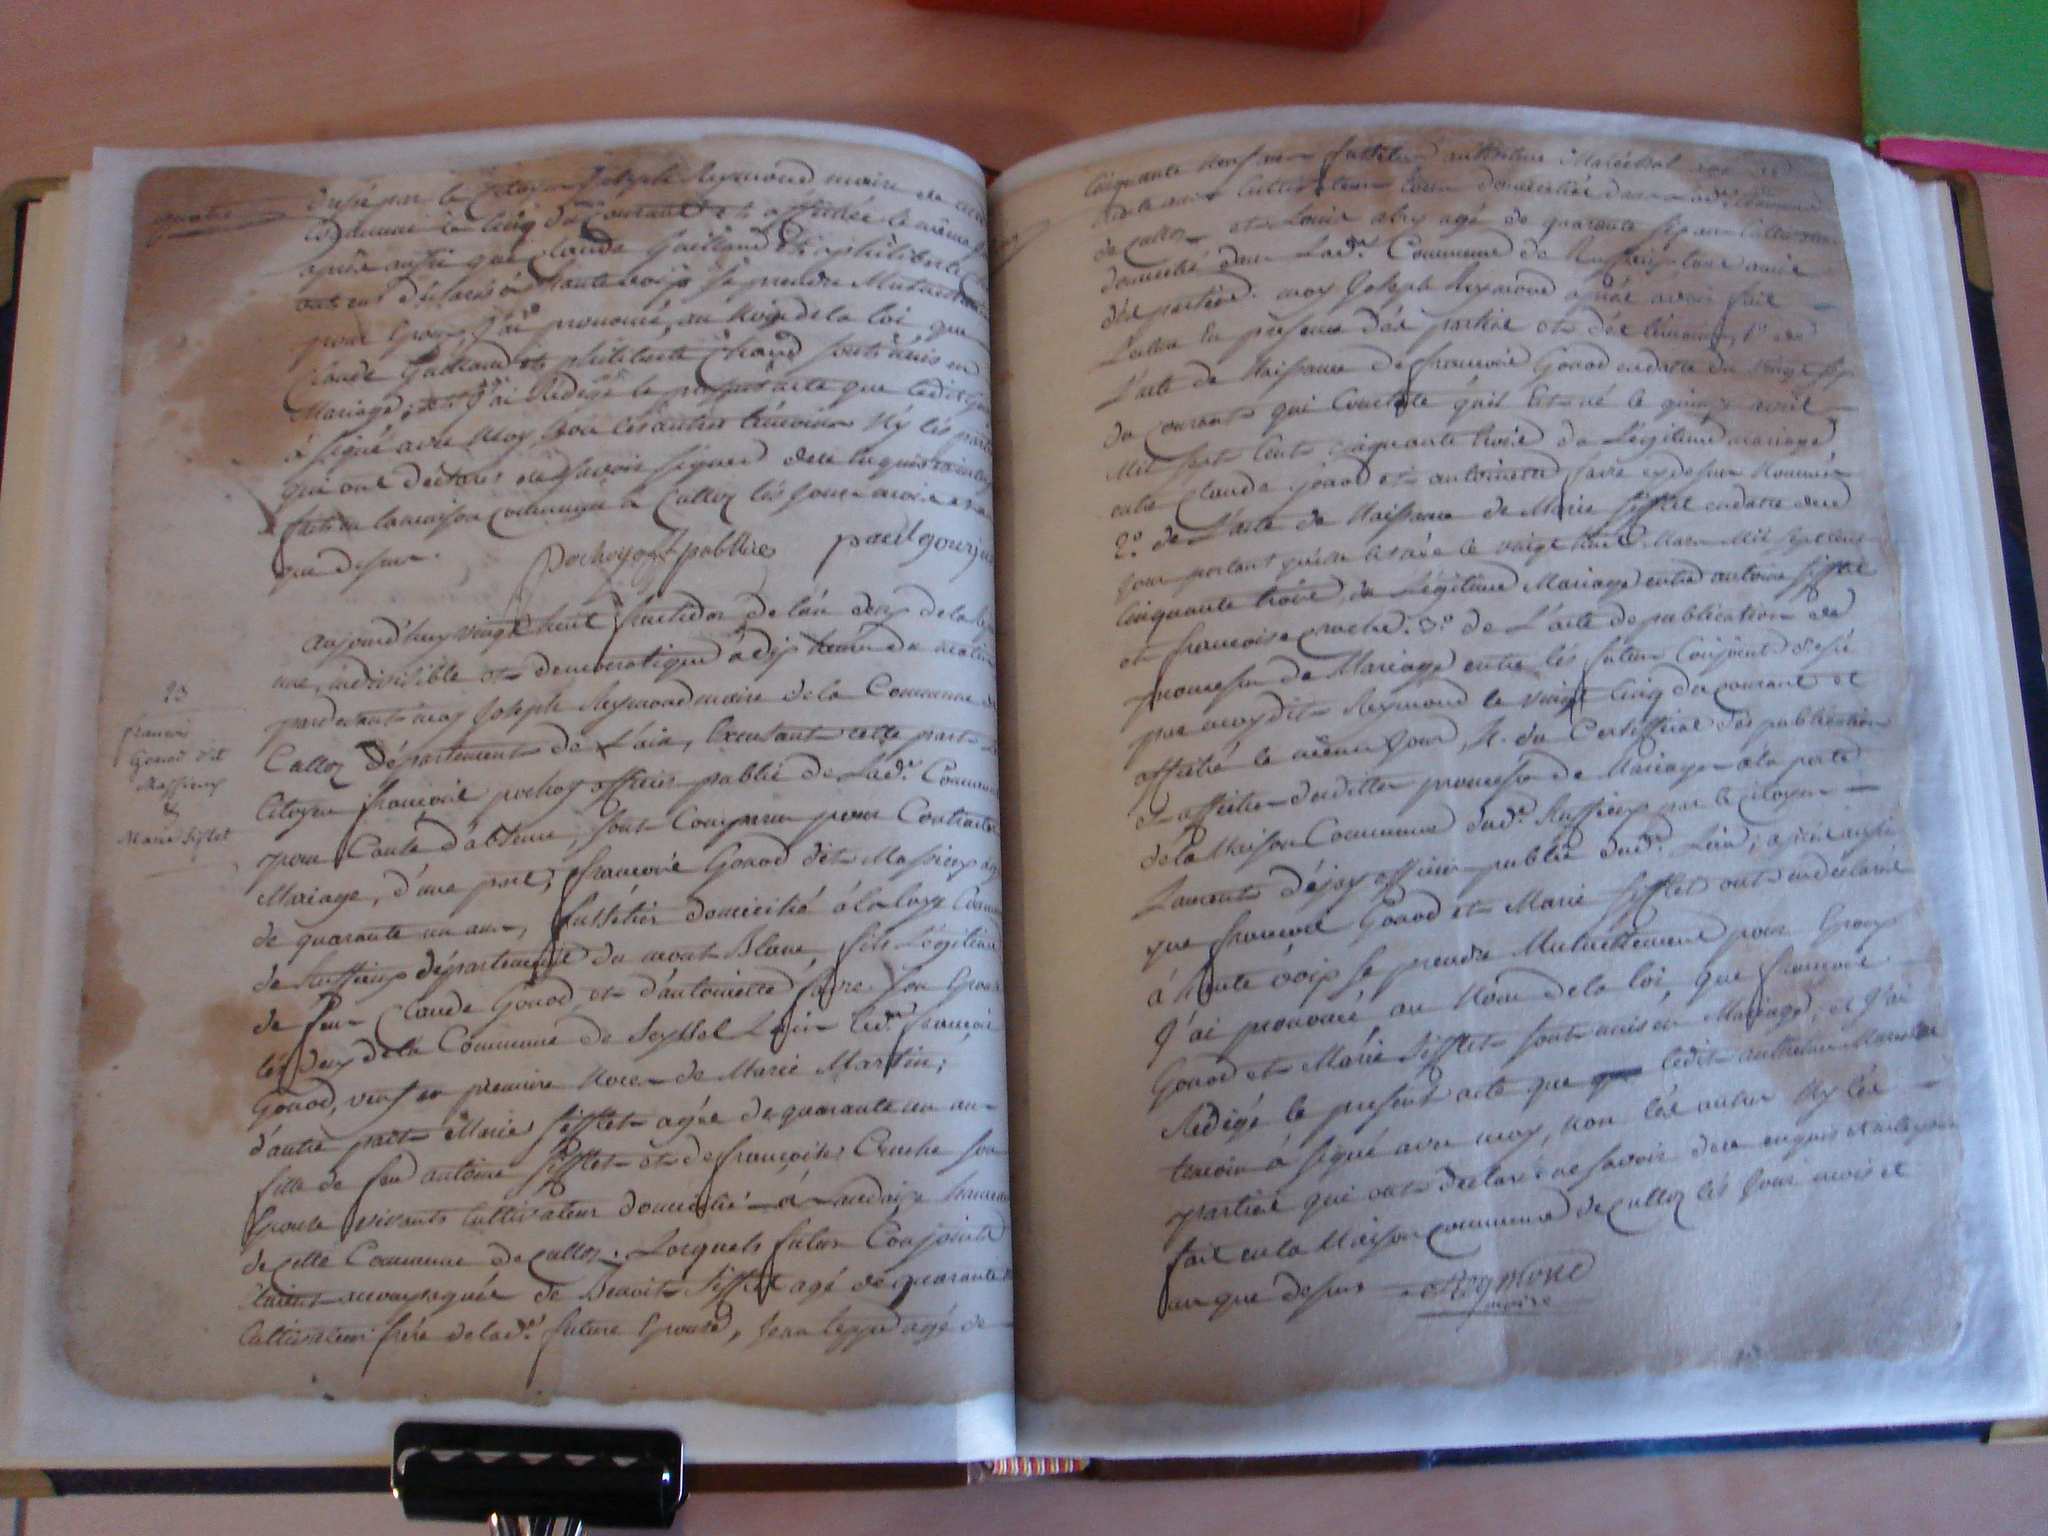 dressé par le Citoyen Joseph Reymond maire de
Commune le cinq du Courant et affichée le même
après aussi que Claude Gaillard et philiberte
ont eut déclarés à haute voix se prendre Mutuellement
pour Epoux, J'ai prononcé, au Nom de la loi que
Claude Gaillard et philiberte sont unis en
Mariage, et J'ai Redigé le present acte que ledit
à signé avec Moy non les autres témoins Ny les parties
qui ont déclarés ne savoir signer de ce enquis
fait en la maison commune à Culloz les Jour mois et an
que dessus. Pochoy off publice paul gourju
Aujourd'huy vingt huit fructidor de l'an deux de la
une, indivisible et democratique à dix heures du matin
pardevant moy Joseph Reymond maire de la Commune de
Culloz département de L'ain, Exercant cette part
Citoyen françois pochoy officier public de Lad.e Commune
pour Cause d'absence, sont Comparus pour Contracter
Mariage, d'une part, françois Gonod dit Massieux agé
de quarante un ans, domicilié à la loy Commune
de Ruffieux département du mont Blanc, fils Légitime
de feu Claude Gonod, et d'antoinette favre son Epouse
les deux de la Commune de Seyssel L'ain led.t françois
Gonod, veuf en premiere Noce de Marie Martin;
d'autre part Marie Sifflet agée de quarante un an
fille de feu antoine Sifflet et de françoise Cruche son
Epouse vivants Cultivateur domicilié à Landaize hameau
de Cette Commune de Culloz. Lesquels futur Conjoints
étaient accompagnés de Benoit Sifflet agé de quarante
Cultivateur frère de lad.e future Epouse, Jean agé de
23
françois
Gonod dit
Massieux
&
Marie Siflet
Cinquante neuf ans antheleme Maréchal
Cultivateur tous domiciliés dans
de Culloz et Louis agé de quarante sept ans Cultivateur
domicilié dans Lad.e Commune de Ruffieux tous amis
dés parties. moy Joseph Reymond après avoir fait
Lecture En présence dés parties et dés témoins, 1.º de
L'acte de Naissance de françois Gonod en datte du vingt sept
du Courant qui Constate qu'il Est né le quinze avril
Mil sept Cent Cinquante trois du Légitime mariage
entre Claude Gonod et antoinette favre cy dessus Nommés
2.º de L'acte de Naissance de Marie Sifflet en datte
Jour portant qu'elle est née le vingt huit Mars Mil sept Cent
Cinquante trois, du Légitime Mariage entre antoine Sifflet
et françoise Cruche. 3.º de L'acte de publication de
promesse de Mariage entre lés futur Conjoints dressé
par moy dit Reymond le vingt cinq du courant et
affiché le même Jour, 4. du Certifficat dés publication
et affiche desdittes promesse de Mariage à la porte
de la Maison Commune dud.t Ruffieux par le citoyen
Laurent Déjoy officier public dud.t Lieu; après aussi
que françois Gonod et Marie Sifflet ont eu déclaré
à haute voix se prendre Mutuellement pour Epoux
J'ai prononcé au Nom de la loi, que françois
Gonod et Marie Sifflet sont unis en Mariage, et J'ai
Redigé le present acte que ledit antheleme
temoin à signé avec moy, non lés autres Ny lés
parties qui ont declaré ne savoir de ce enquis
fait en la Maison commune de Culloz lés Jour mois et
an que dessus Reymond
maire